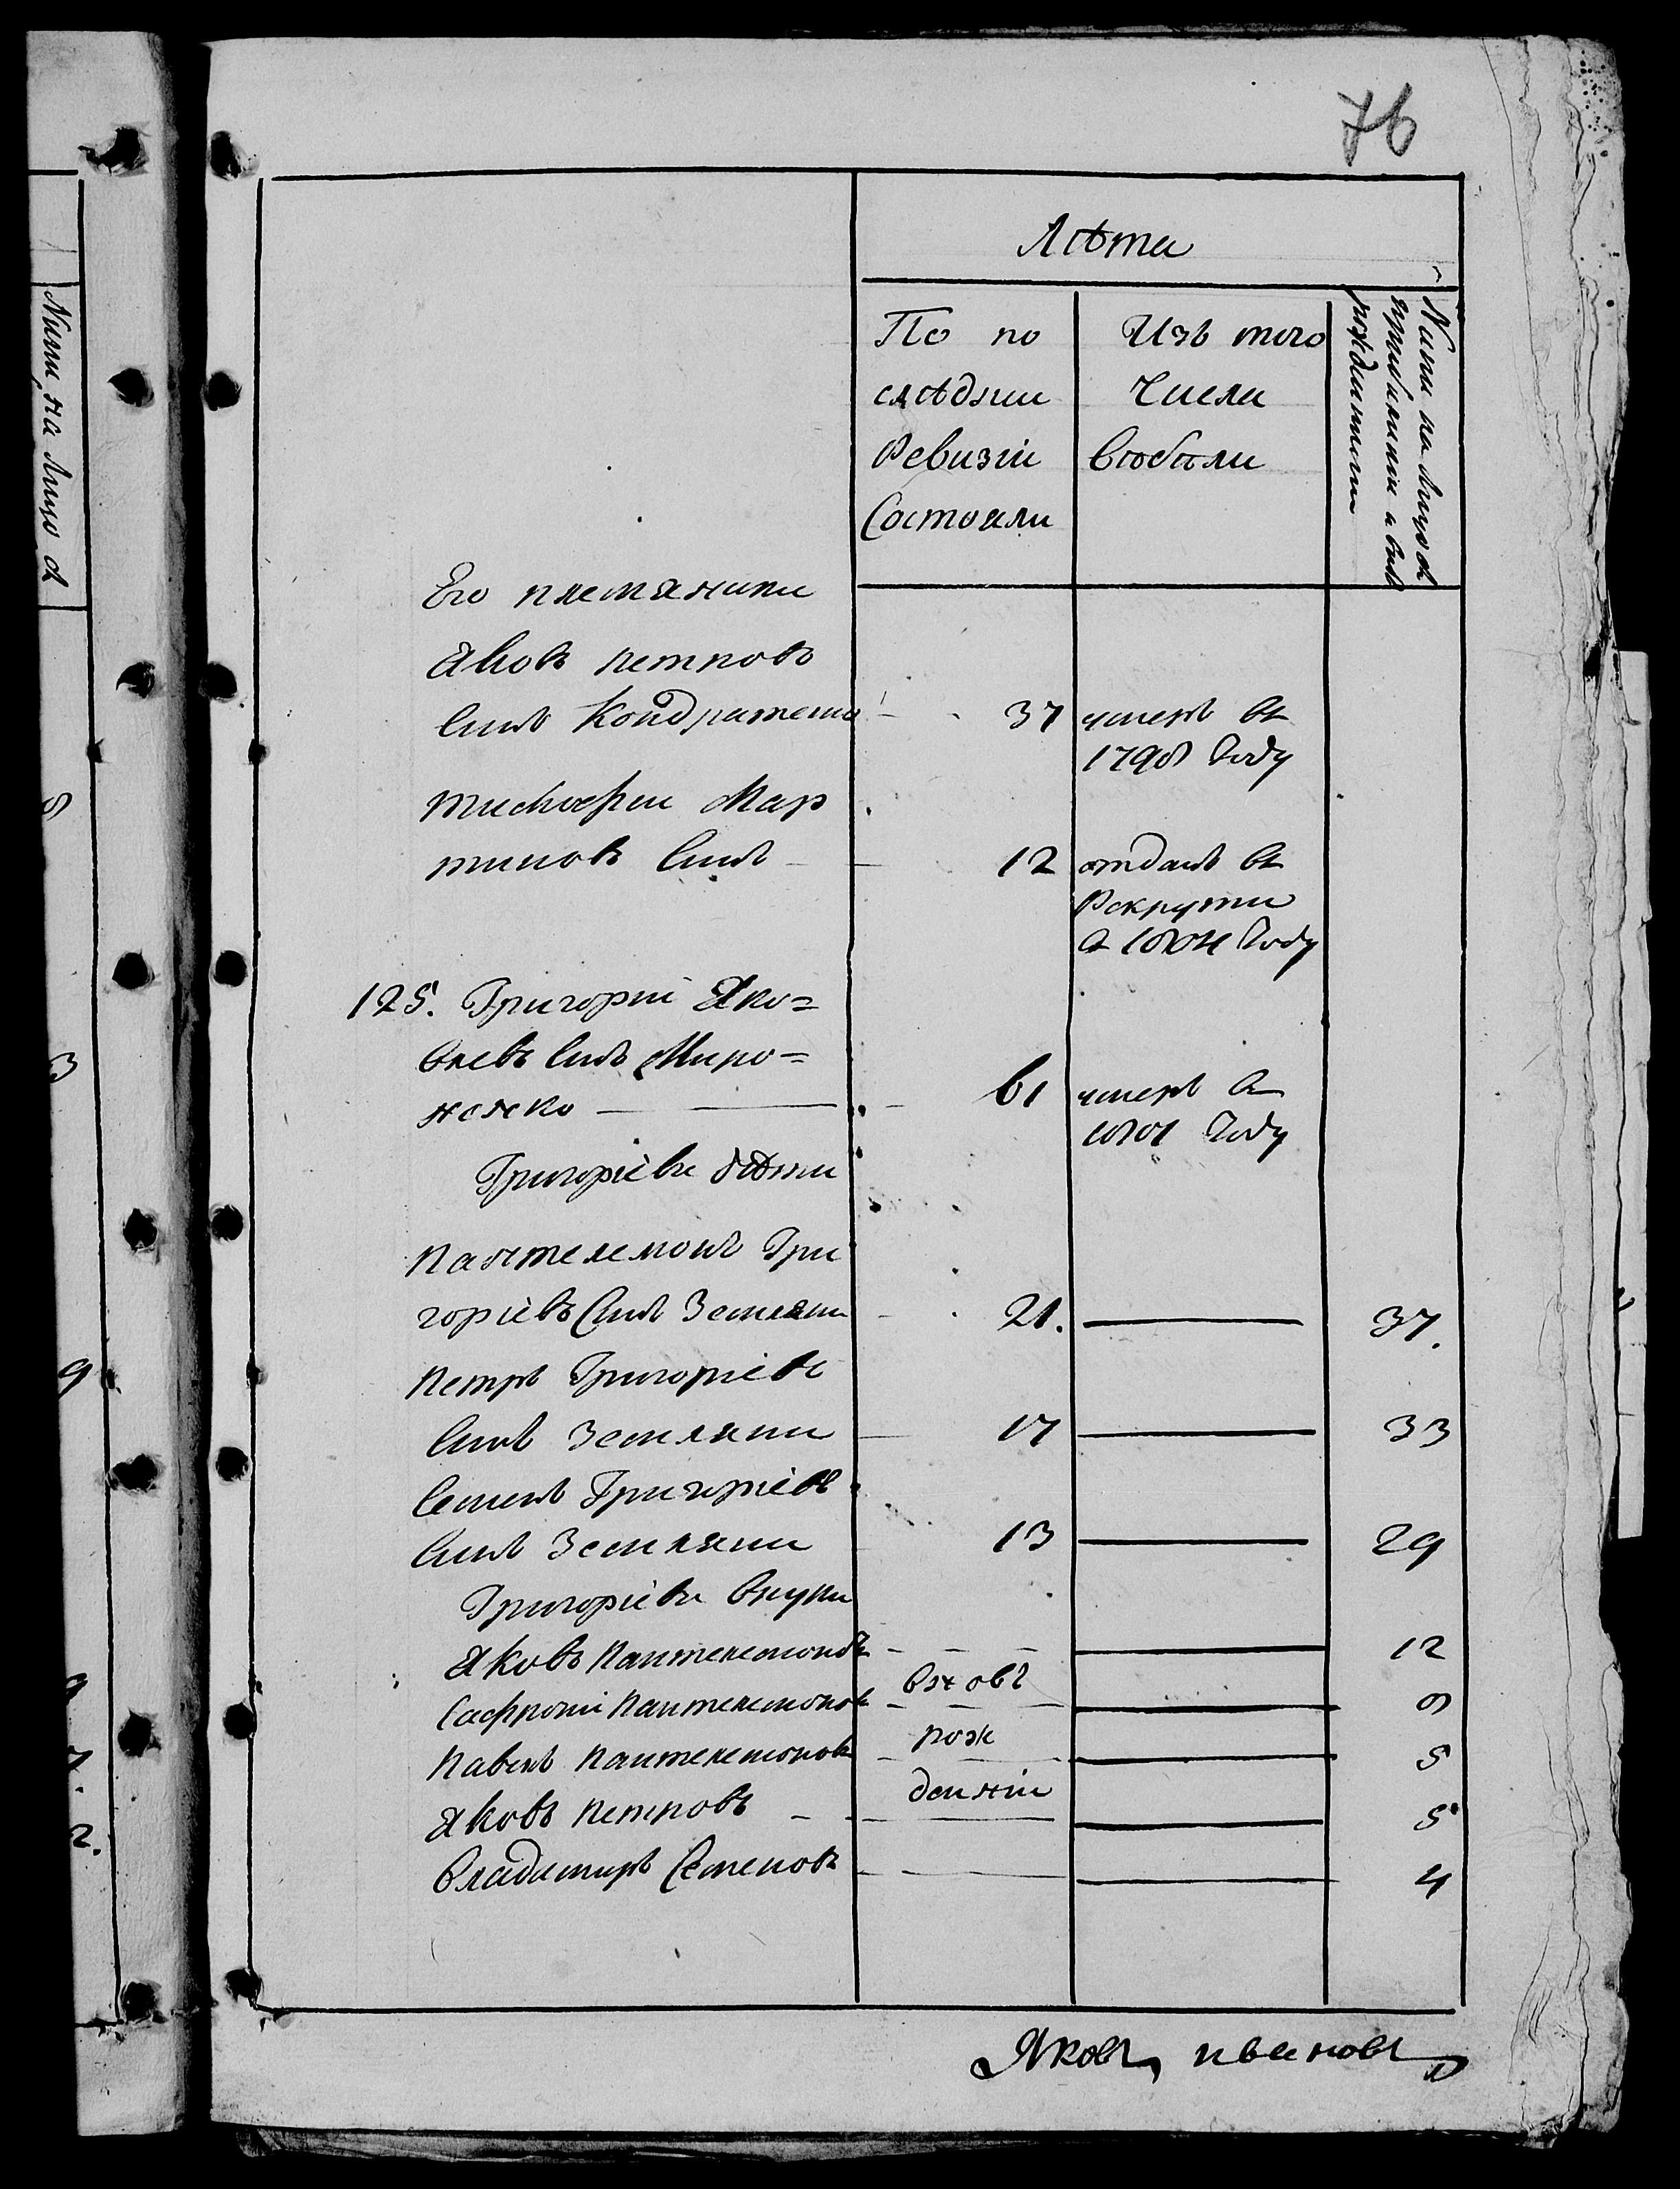 76
Лѣта
По по
слѣднии
Ревизіи
Состояли
Изъ того
Числа
выбыли
Нини на лицо съ
рожденными
Нини на лицо съ
Его племяники
Яковъ петровъ
синъ Кондратенко 37 умеръ въ
1798 Году
тимофеи Мар
тиновъ Синъ 12 отданъ въ
Рекрути
в 1804 Году
125. Григорій Яко=
влевъ Синъ Миро=
ненко 61 умеръ в
1801 Году
Григоріеви дѣти
пантелемонъ Гри
горіевъ Синъ Землянии 21. 37.
петръ Григоріевъ
Синъ Землянии 17 33
Семенъ Григоріевъ
Синъ Землянии 13 29
Григоріеви внуки
Яковъ пантелемоновъ 12
вновъ
Сафроніи пантелемоновъ 8
рож
павелъ пантелемоновъ 5
денніи
Яковъ петровъ 5
владимиръ Семеновъ 4
Яковъ ивановъ